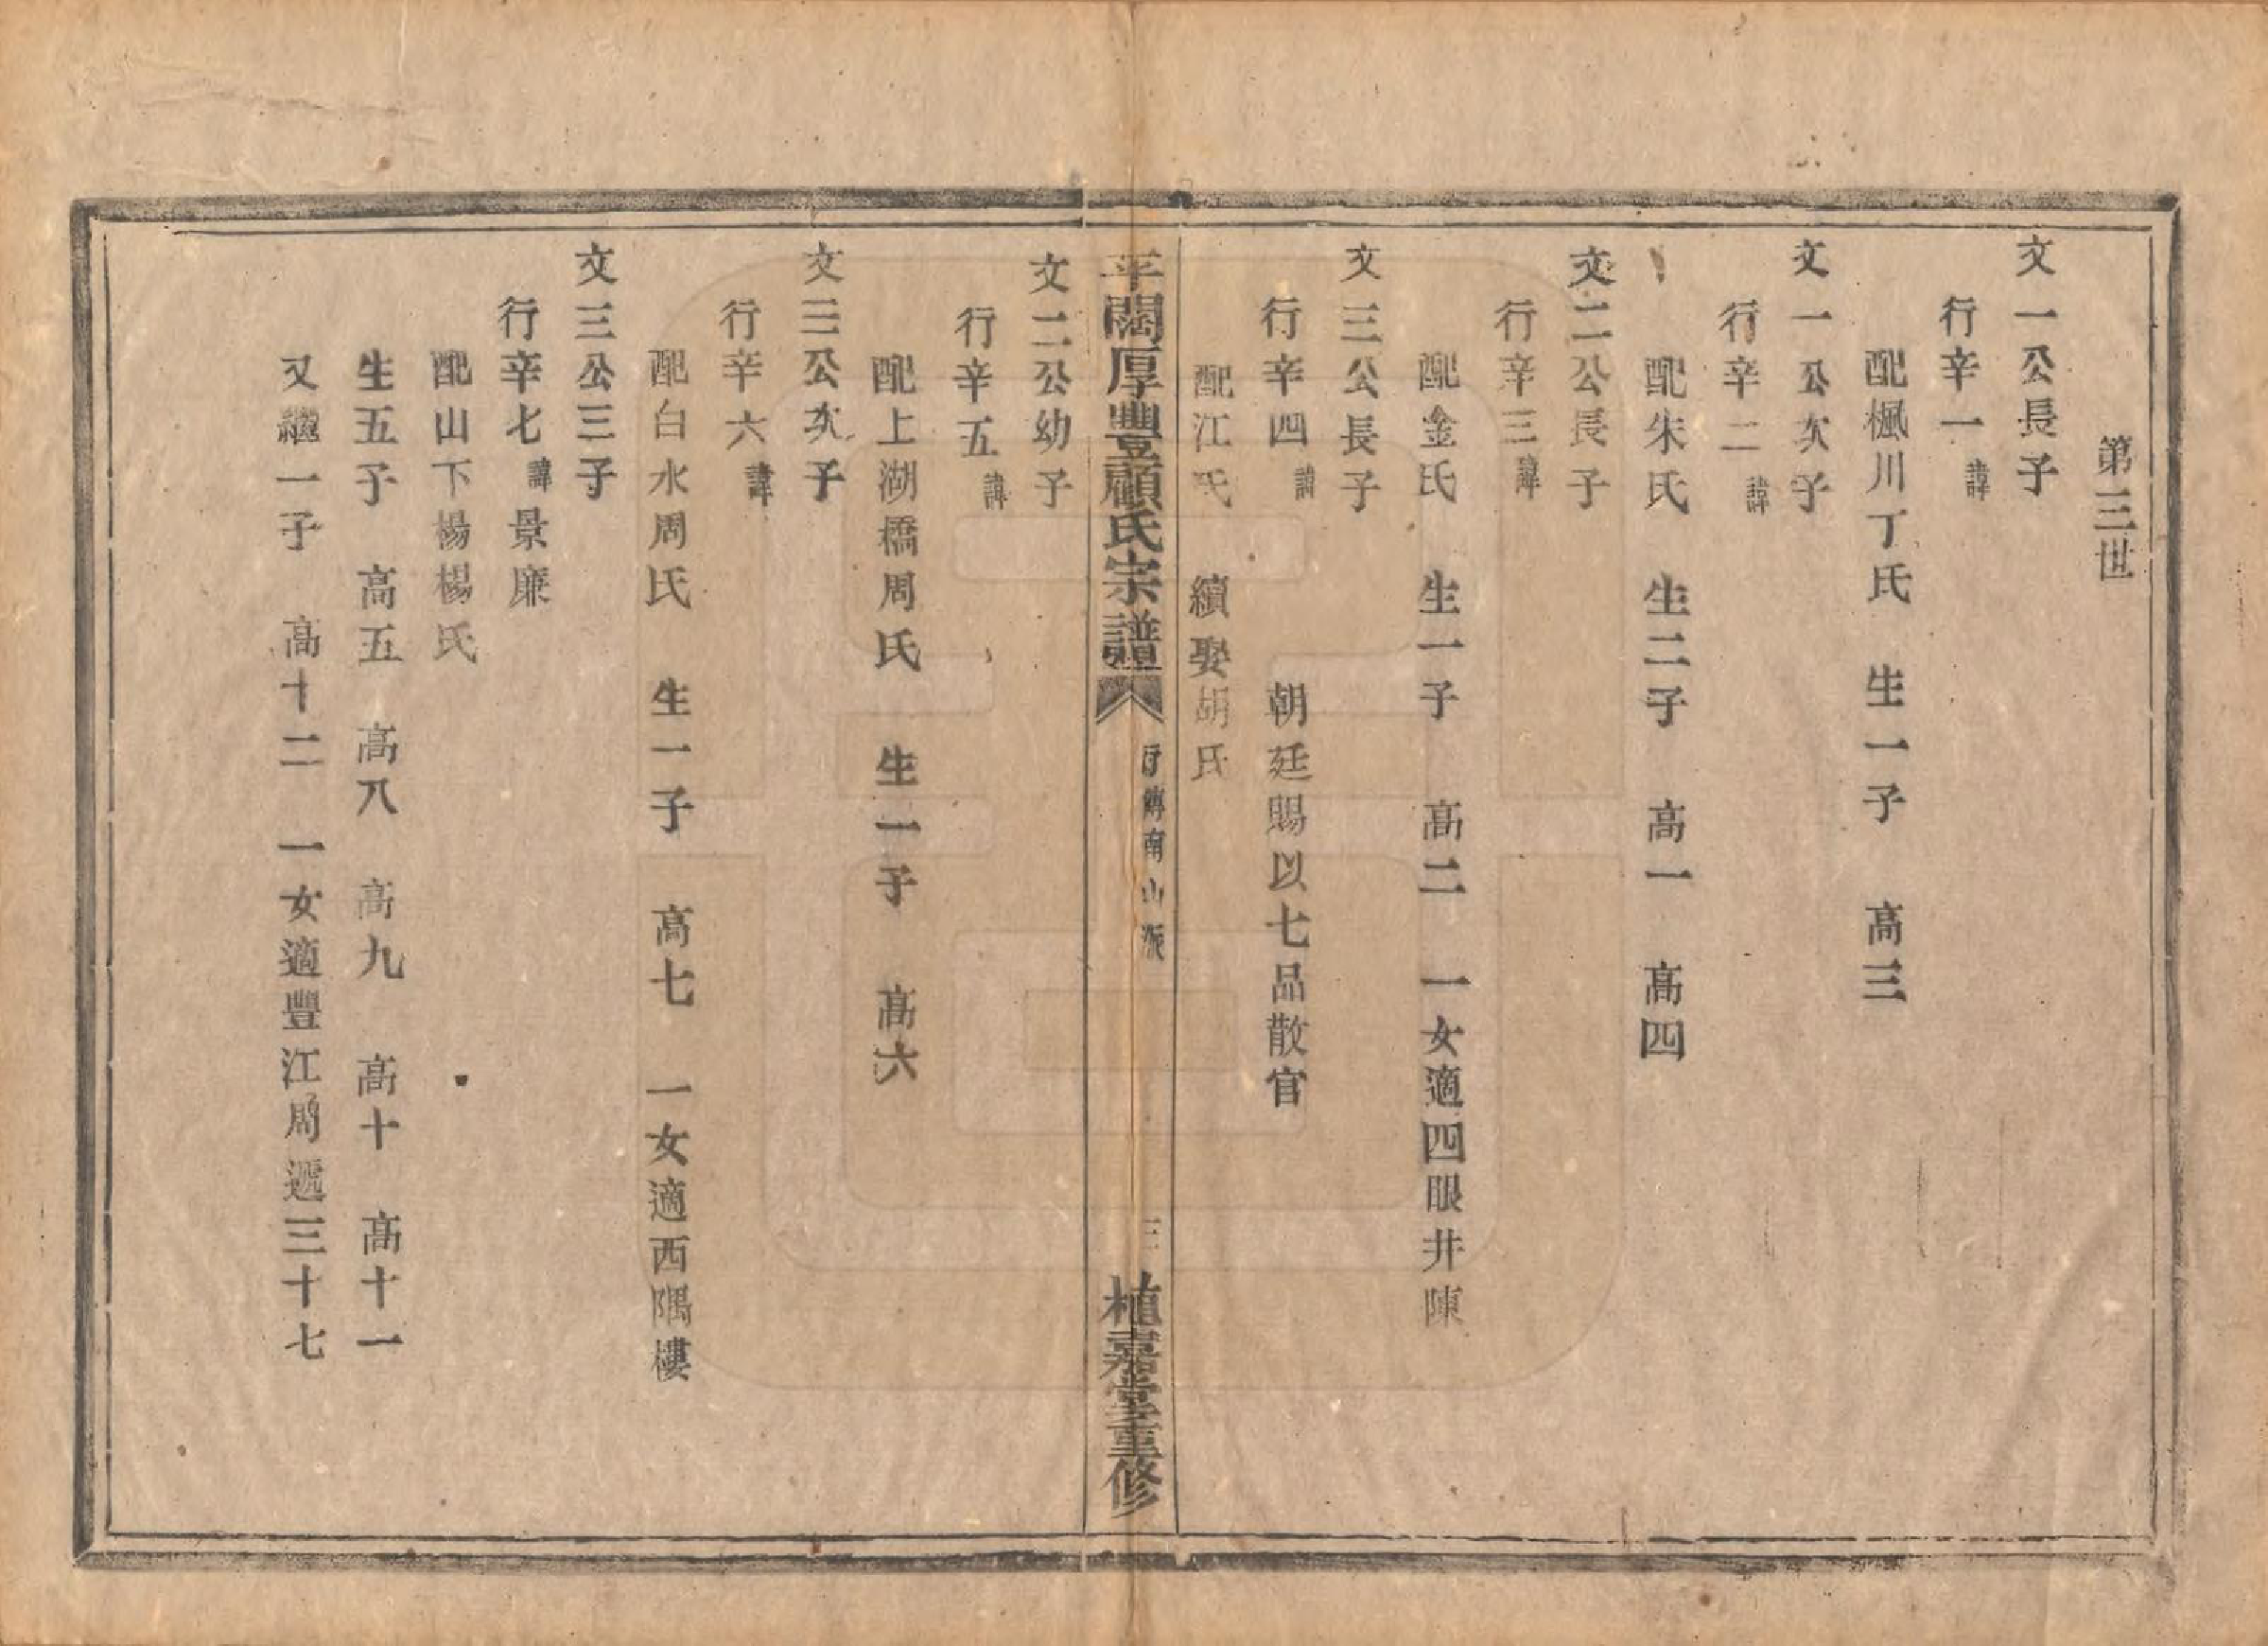 第三世
文一公長子
行辛一諱
配楓川丁氏　生一子　高三
文一公次子
行辛二諱
配朱氏　生二子　高一　高四
文二公長子
行辛三諱
配金氏　生一子　高二　一女適四眼井陳
文三公長子
行辛四諱　朝廷賜以七品散官
配江氏　續娶胡氏
平闊厚豐顧氏宗譜　行傳南山派　三　植嘉堂重修
文二公幼子
行辛五諱
配上湖橋周氏　生一子　高六
文三公次子
行辛六諱
配白水周氏　生一子　高七　一女適西隅樓
文三公三子
行辛七諱景廉
配山下楊楊氏
生五子　高五　高八　高九　高十　高十一
又繼一子　高十二　一女適豐江周遞三十七